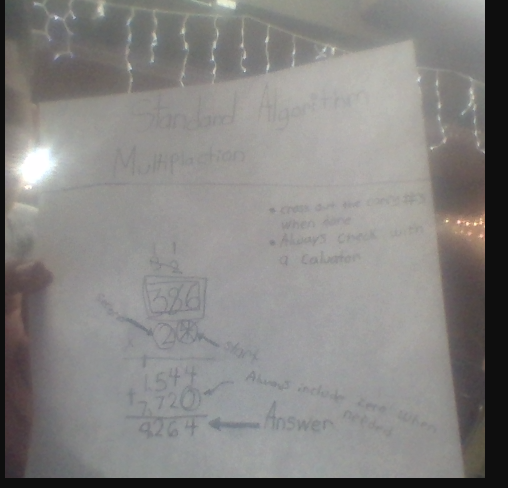 Standard Algorithm
Multiplaction
• cross out the carry #'s
when done
• Always check with
a Caluator
1 1
386
28
start
1
1,544
Always include zero when
needed
+ 7,720
9264
Answer